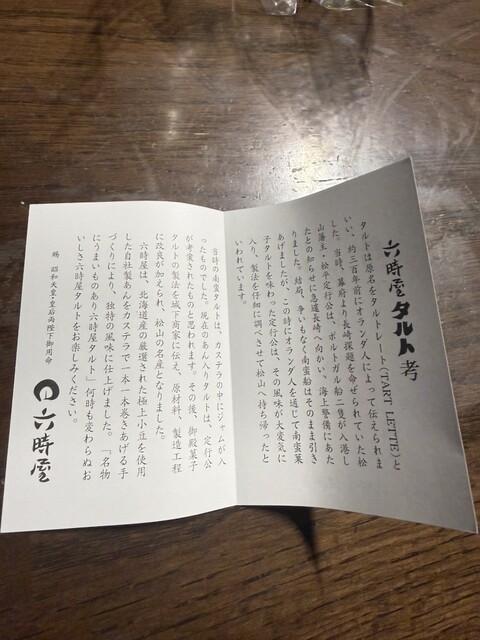 六時屋タルト考
タルトは原名をタルトレート(TART LETTE)と
いい、約三百年前にオランダ人によって伝えられま
した。当時、幕府より長崎探題を命ぜられていた松
山藩主・松平定行公は、ポルトガル船二隻が入港し
たとの知らせに急遽長崎へ向かい、海上警備にあた
りました。結局、争いもなく南蛮船はそのまま引き
あげましたが、この時にオランダ人を通じて南蛮菓
子タルトを味わった定行公は、その風味が大変気に
入り、製法を仔細に調べさせて松山へ持ち帰ったと
いわれています。
当時の南蛮タルトは、カステラの中にジャムが入
ったものでした。現在のあん入りタルトは、定行公
が考案されたものと思われます。その後、御殿菓子
タルトの製法を城下商家に伝え、原材料、製造工程
に改良が加えられ、松山の名産となりました。
六時屋は、北海道産の厳選された極上小豆を使用
した自社製あんをカステラで一本一本巻きあげる手
づくりにより、独特の風味に仕上げました。「名物
にうまいものあり六時屋タルト」何時も変わらぬお
いしさ六時屋タルトをお楽しみください。
賜 昭和天皇・皇后両陛下御用命
六時屋